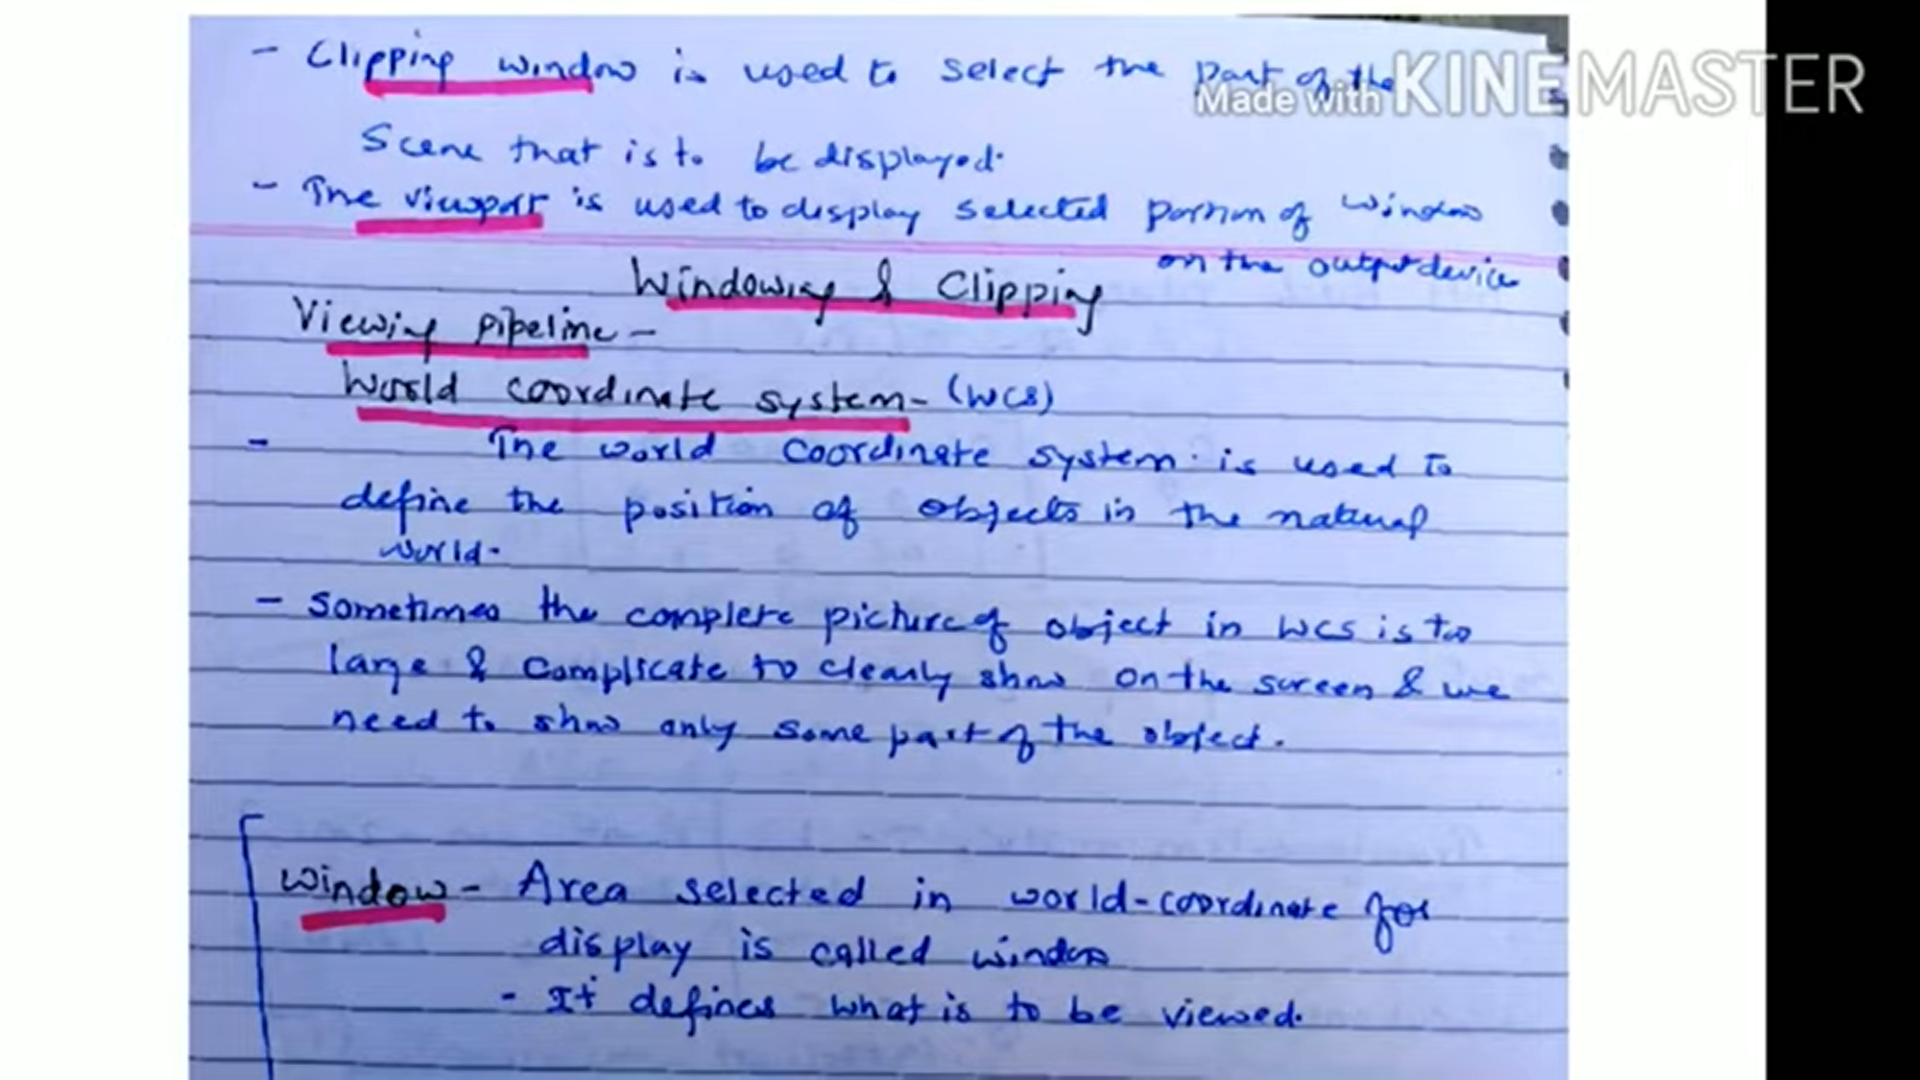 - Clipping window is used to select the part of the
Made with KINEMASTER
Scene that is to be displayed.
- The viewport is used to display selected portion of window
on the output device
Windowing & Clipping
Viewing pipeline -
World coordinate system - (WCS)
- The world coordinate system is used to
define the position of objects in the natural
world.
- Sometimes the complete picture of object in WCS is too
large & complicate to clearly show on the screen & we
need to show only some part of the object.
Window - Area selected in world-coordinate for
display is called window
- It defines what is to be viewed.